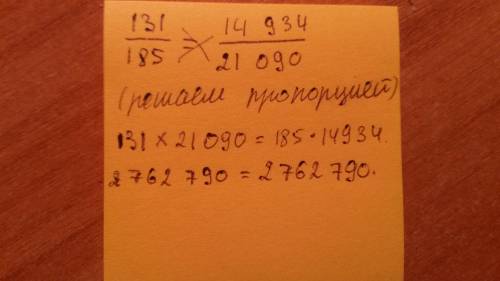 131/185 = 14 934/21 090
(решаем пропорцией)
131 × 21 090 = 185 · 14934.
2 762 790 = 2 762 790.